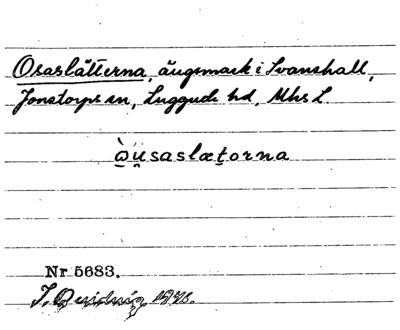 Osaslätterna, ängsmark i Svanshall,
Jonstorps sn, Luggude hd, Mhs L.
ὼṳsaslæt̯orna
Nr 5683.